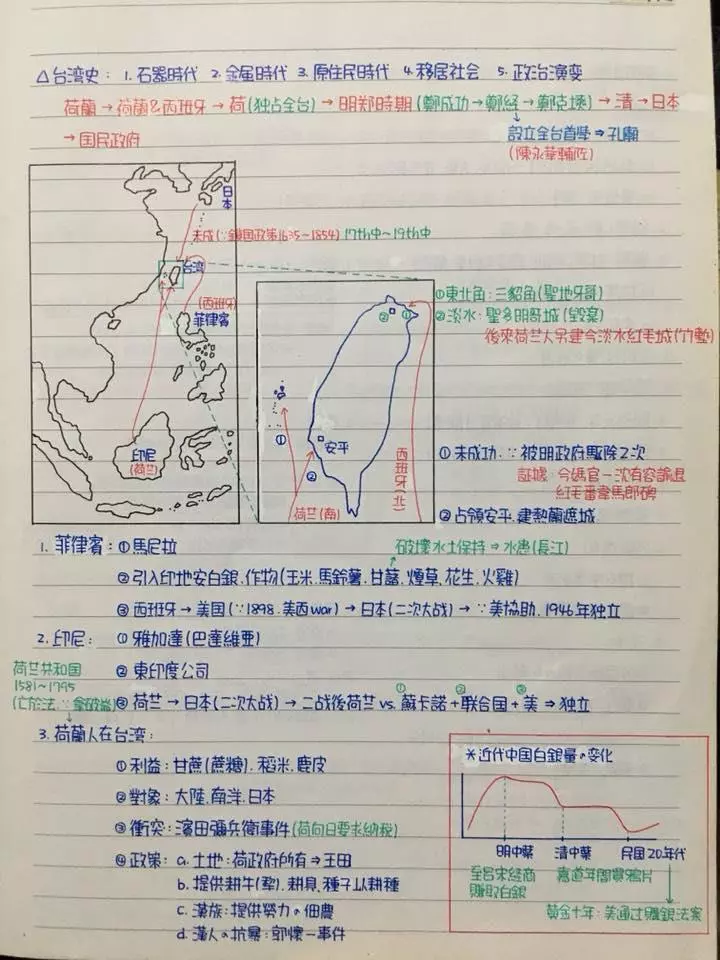 △台湾史: 1. 石器時代 2. 金属時代 3. 原住民時代 4. 移居社会 5. 政治演変
荷蘭→荷蘭&西班牙→荷(独占全台)→明郑時期(鄭成功→鄭経→鄭克塽)→清→日本
→国民政府
設立全台首學⇒孔廟
(陳永華輔佐)
日本
未成(∵鎖国政策1635~1854) 17th中~19th中
台湾
(西班牙)
菲律賓
印尼
(荷兰)
①東北角:三貂角(聖地牙哥)
②淡水:聖多明哥城(毀棄)
後來荷兰人另建今淡水紅毛城(竹塹)
② ①
①
安平
②
西班牙(北)
荷兰(南)
①未成功.∵被明政府駆除2次
証據:今媽宮一沈有容諭退
紅毛番韋馬郎碑
②占領安平.建熱蘭遮城
1. 菲律賓:①馬尼拉
破壞水土保持⇒水患(長江)
②引入印地安白銀.作物(玉米.馬鈴薯.甘藷.煙草.花生.火雞)
③西班牙→美国(∵1898.美西war)→日本(二次大战)→∵美協助.1946年独立
2. 印尼:①雅加達(巴達維亜)
②東印度公司
荷兰共和国
1581~1795
(亡於法.∵拿破崙)
③荷兰→日本(二次大战)→二战後荷兰 vs. ①蘇卡諾+②联合国+③美⇒独立
3. 荷蘭人在台湾:
①利益:甘蔗(蔗糖).稻米.鹿皮
②對象:大陸.南洋.日本
③衝突:濱田彌兵衛事件(荷向日要求納税)
④政策:a. 土地:荷政府所有⇒王田
b. 提供耕牛(犁).耕具.種子以耕種
c. 漢族:提供勞力の佃農
d. 漢人の抗暴:郭懷一事件
*近代中国白銀量の変化
明中葉 清中葉 民国20年代
至呂宋経商
賺取白銀
嘉道年間買鴉片
黄金十年:美通过購銀法案